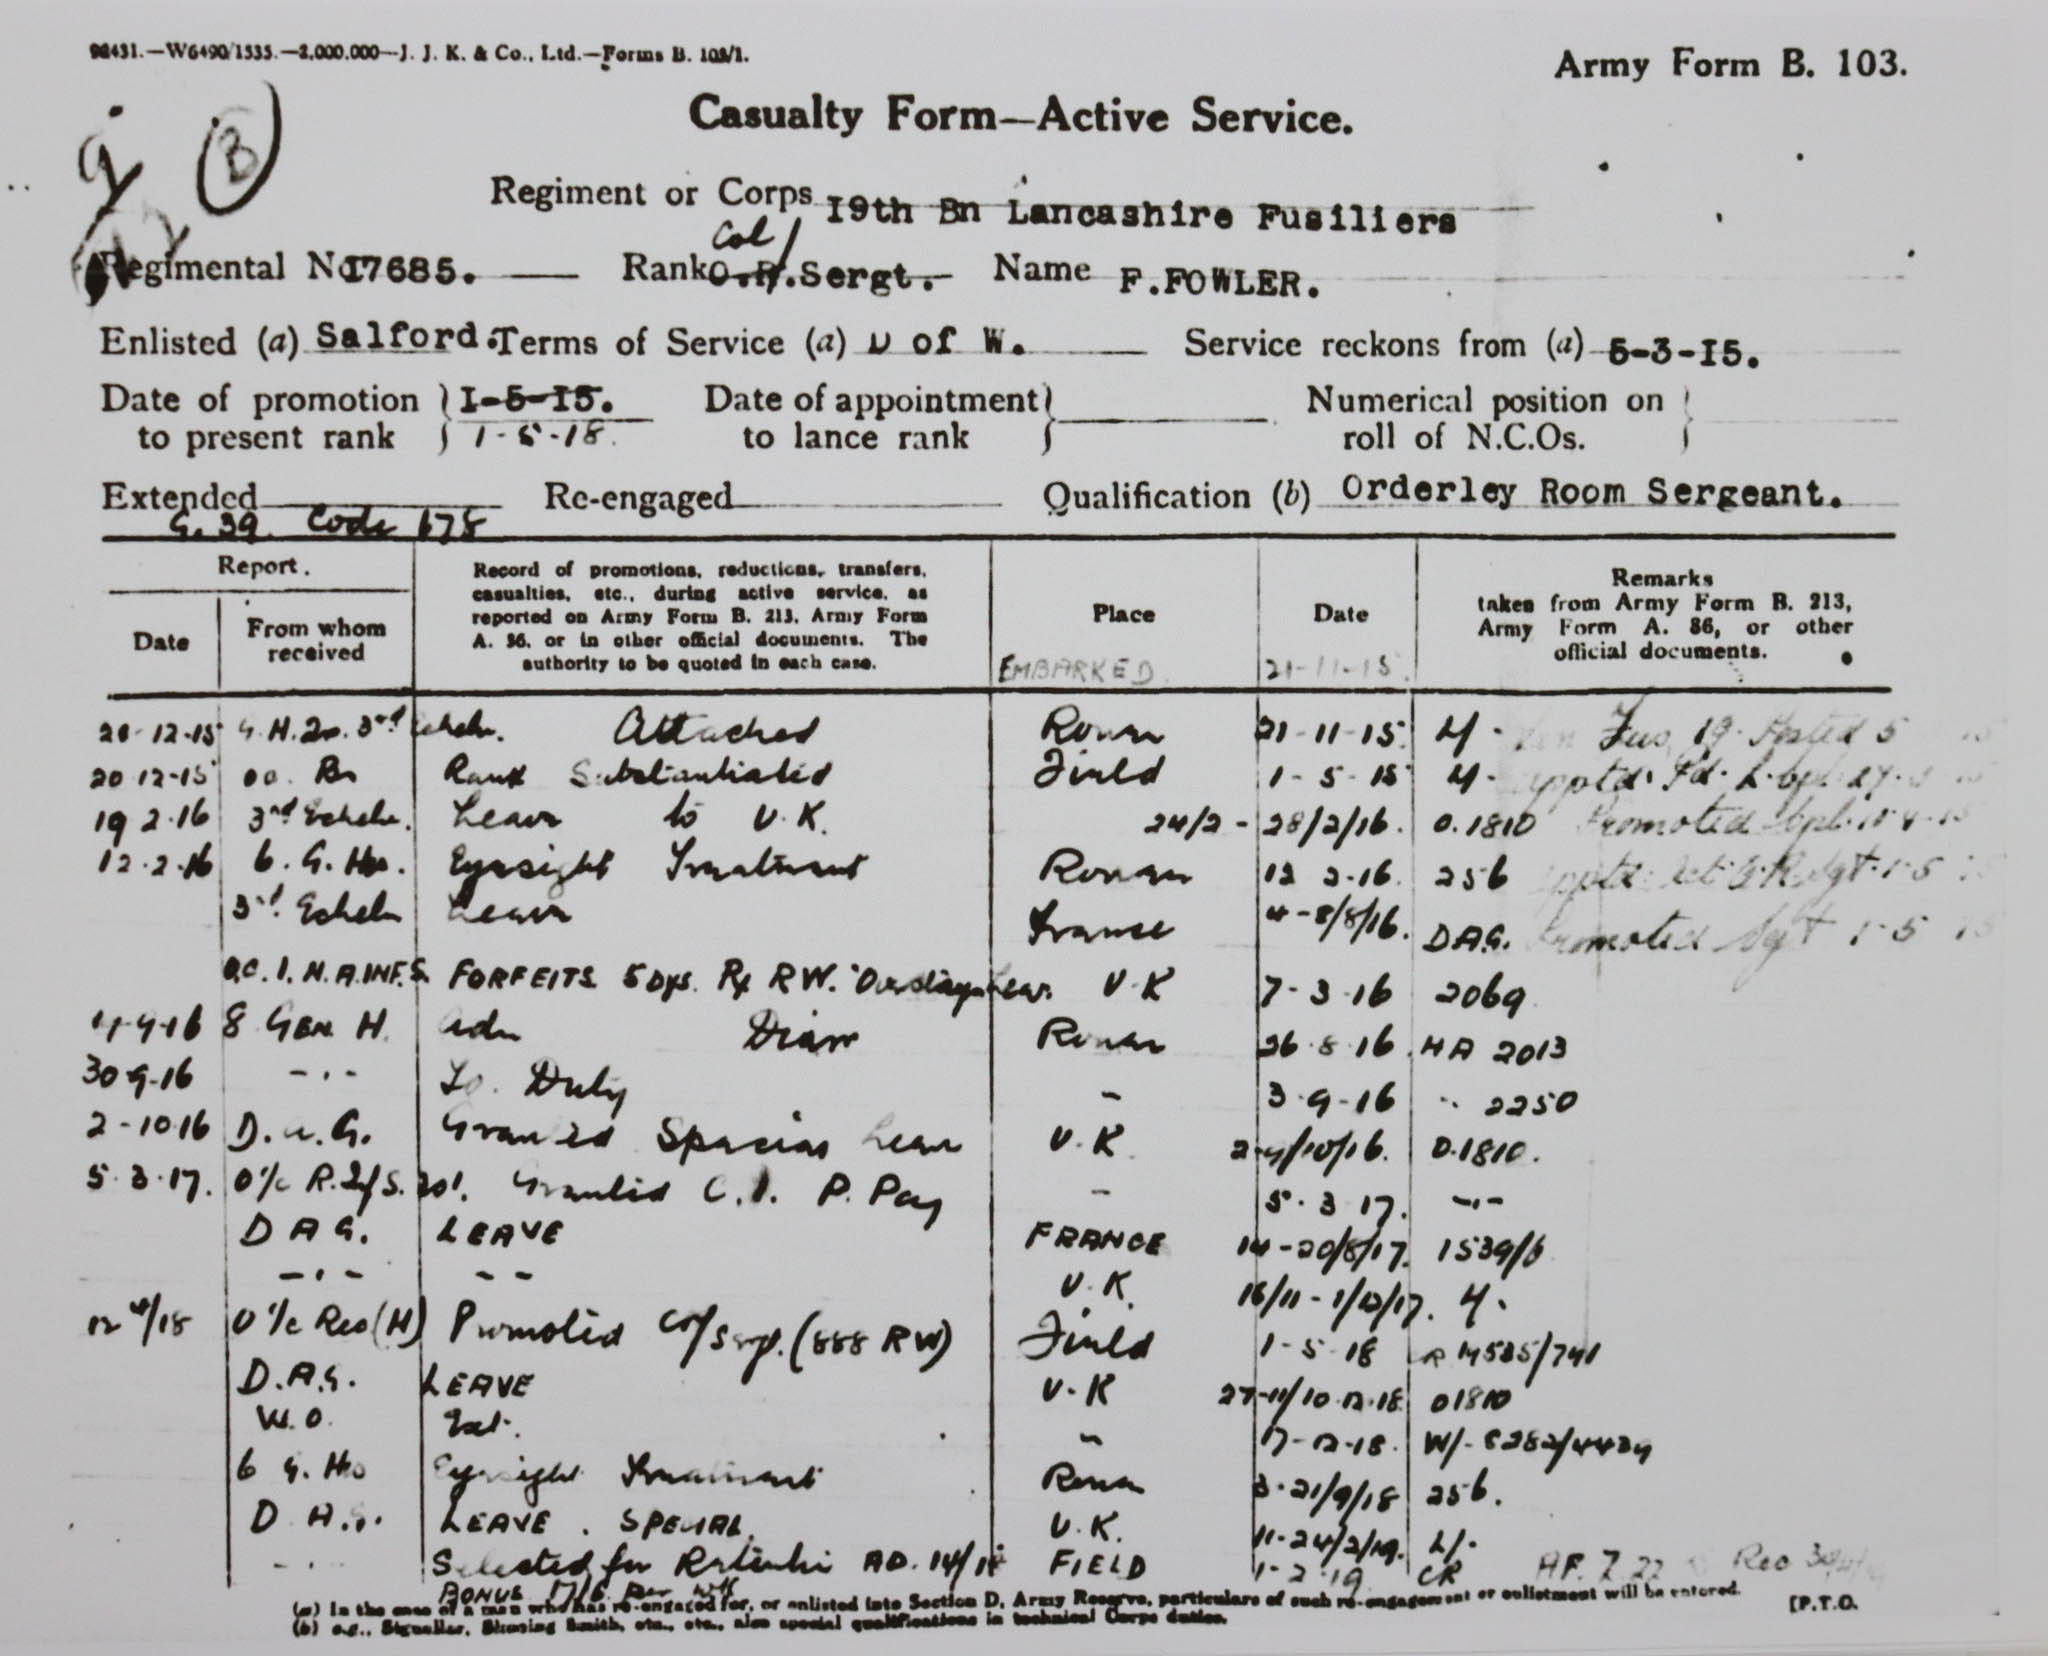 98431.—W6490/1535.—2,000,000—J. J. K. & Co., Ltd.—Forms B. 103/1.
Army Form B. 103.
Casualty Form—Active Service.
B
Regiment or Corps I9th Bn Lancashire Fusiliers
Col/
Regimental No I7685. Rank O.R.Sergt. Name F.FOWLER.
Enlisted (a) Salford. Terms of Service (a) D of W. Service reckons from (a) 5-3-I5.
Date of promotion to present rank I-5-I5. Date of appointment to lance rank Numerical position on roll of N.C.Os.
1-5-18.
Extended Re-engaged Qualification (b) Orderley Room Sergeant.
G. 39. Code 678
Report.
Date
From whom received
Record of promotions, reductions, transfers, casualties, etc., during active service, as reported on Army Form B. 213, Army Form A. 36, or in other official documents. The authority to be quoted in each case.
Place
Date
Remarks taken from Army Form B. 213, Army Form A. 36, or other official documents.
EMBARKED 21-11-15.
20-12-15 G.H.Qr. 3rd Echeln. Attached Rouen 21-11-15 4. Fus 19. Posted 5
20-12-15 OC. Bn Rank Substantiated Field 1-5-15 4.
19 2.16 3rd Echeln. Leave to U.K. 24/2 - 28/2/16. O.1810 Promoted
12.2.16 6. G. Hos. Eyesight Treatment Rouen 12 2.16. 256
3rd Echeln Leave France 4-8/8/16. DAG. Promoted Sgt 1-5
FORFEITS 5 Dys. RW. Overstaying Leave. U.K 7-3-16 2069
8 GEN H. Adm Rouen 26 8 16. HA 2013
30-9-16 —·— To Duty – 3-9-16 " 2250
2-10 16 D.A.G. Granted Special Leave U.K. O.1810.
5.3.17. Granted C.I. P. Pay – 5.3 17. —·—
D A G. LEAVE FRANCE 14-20/8/17. 1539/6
—·— – – U.K. 16/11-1/12/17. 4.
Promoted C/Sergt. (888 RW) Field 1-5-18
D.A.G. LEAVE U.K 27-11/10.12.18. O1810
W.O. Ext. " 17-12-18.
6 G. Hos Eyesight Treatment Rouen 3-21/9/18 256.
D.A.G. LEAVE. SPECIAL. U.K. 11-24/2/19. 4.
Selected for FIELD 1-2-19 CR AF. Z. 22
BONUS 17/6
(a) In the case of a man who has re-engaged for, or enlisted into Section D, Army Reserve, particulars of such re-engagement or enlistment will be entered. [P.T.O.
(b) e.g., Signaller, Shoeing Smith, etc., etc., also special qualifications in technical Corps duties.